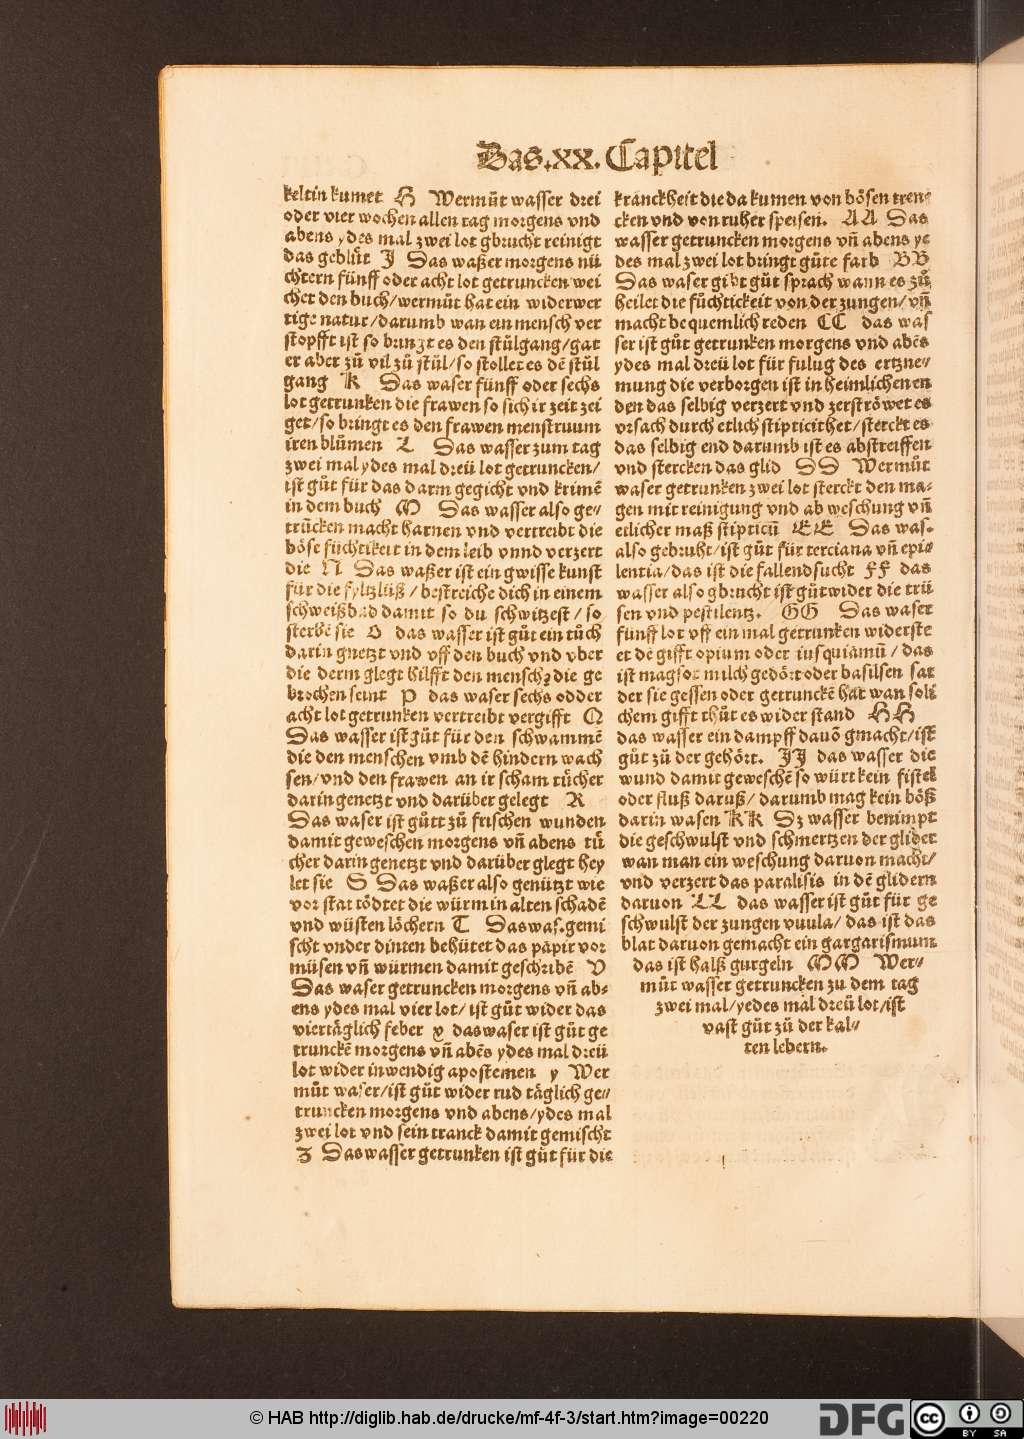 Das.xx.Capitel
keltin kumet H Wermůt wasser drei
oder vier wochen allen tag morgens vnd
abens ydes mal zwei lot gbrucht reinigt
das geblůt J Das waßer morgens nü
chtern fünff oder acht lot getruncken wei
chet den buch/wermůt hat ein widerwer
tige natur/darumb wan ein mensch ver
stopfft ist so bringt es den stůlgang/gat
er aber zů vil zů stůl/so stollet es dē stůl
gang K Das waser fünff oder sechs
lot getrunken die frawen so sich ir zeit zei
get/so bringt es den frawen menstruum
iren blůmen L Das wasser zum tag
zwei mal ydes mal dreü lot getruncken/
ist gůt für das darm gegicht vnd krimē
in dem buch M Das wasser also ge⸗
trücken macht harnen vnd vertreibt die
böse füchtikeit in dem leib vnnd verzert
die N Das waßer ist ein gwisse kunst
für die fyltzlüß / bestreiche dich in einem
schweißbad damit so du schwitzest / so
sterbē sie O das wasser ist gůt ein tůch
darin gnetzt vnd vff den buch vnd vber
die derm glegt hilfft den menschē die ge
brochen seint P das waser sechs odder
acht lot getrunken vertreibt vergifft Q
Das wasser ist gůt für den schwammē
die den menschen vmb dē hindern wach
sen/vnd den frawen an ir scham tücher
darin genetzt vnd darüber gelegt R
Das waser ist gůtt zů frischen wunden
damit geweschen morgens vñ abens tü
cher darin genetzt vnd darüber glegt hey
let sie S Das waßer also genützt wie
vor stat tödtet die würm in alten schadē
vnd wüsten löchern T Das was.gemi
scht vnder dinten behütet das papir vor
müsen vñ würmen damit geschribē V
Das waser getruncken morgens vñ ab⸗
ens ydes mal vier lot/ ist gůt wider das
viertäglich feber x das waser ist gůt ge
trunckē morgens vñ abēs ydes mal dreü
lot wider inwendig apostemen y Wer
můt waser/ist gůt wider rud täglich ge⸗
truncken morgens vnd abens/ydes mal
zwei lot vnd sein tranck damit gemischt
Z Das wasser getrunken ist gůt für die
kranckheit die da kumen von bösen tren⸗
cken vnd von ruher speisen. AA Das
wasser getruncken morgens vñ abens ye
des mal zwei lot bringt gůte farb BB
Das waser gibt gůt sprach wann es zů
heilet die fůchtickeit von der zungen/vñ
macht bequemlich reden CC das was
ser ist gůt getrunken morgens vnd abēs
ydes mal dreü lot für fulug des ertzne⸗
mung die verborgen ist in heimlichen en
den das selbig verzert vnd zerströwet es
vrsach durch etlich stipticithet/sterckt es
das selbig end darumb ist es abstreiffen
vnd stercken das glid DD Wermůt
waser getrunken zwei lot sterckt den ma⸗
gen mit reinigung vnd ab weschung vñ
etlicher maß stipticū EE Das was.
also gebruht/ist gůt für terciana vñ epi⸗
lentia/das ist die fallendsucht FF das
wasser also gbrucht ist gůt wider die trü
sen vnd pestilentz. GG Das waser
fünff lot vff ein mal getrunken widerste
et dē gifft opium oder iusquiamū / das
ist magsot milch gedört oder basilsen sat
der sie gessen oder getrunckē hat wan soli
chem gifft thůt es wider stand HH
das wasser ein dampff dauō gmacht/ist
gůt zů der gehört. JJ das wasser die
wund damit geweschē so würt kein fistel
oder fluß daruß/ darumb mag kein böß
darin wasen KK Dz wasser benimpt
die geschwulst vnd schmertzen der glider
wan man ein weschung daruon macht/
vnd verzert das paralisis in dē glidern
daruon LL das wasser ist gůt für ge
schwulst der zungen vuula/ das ist das
blat daruon gemacht ein gargarismum
das ist halß gurgeln MM Wer⸗
můt wasser getruncken zu dem tag
zwei mal/yedes mal dreü lot/ist
vast gůt zů der kal⸗
ten lebern.
© HAB http://diglib.hab.de/drucke/mf-4f-3/start.htm?image=00220
DFG
cc
BY SA